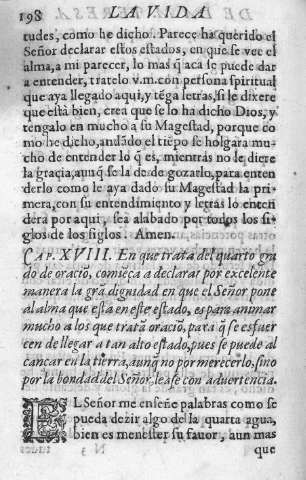 198 LA VIDA
tudes, como he dicho. Parece ha querido el
Señor declarar estos estados, en que se vee el
alma, a mi parecer, lo mas q̃ acà se puede dar
a entender, tratelo v.m. con persona spiritual
que aya llegado aqui, y tẽga letras, si le dixere
que està bien, crea que se lo ha dicho Dios, y
tengalo en mucho a su Magestad, porque co
mo he dicho, andãdo el tiẽpo se holgara mu-
cho de entender lo q̃ es, mientras no le diere
la gracia, aunq̃ se la dè de gozarlo, para enten
derlo como le aya dado su Magestad la pri-
mera, con su entendimiento y letras lo enten
dera por aqui, sea alabado por todos los si-
glos de los siglos. Amen.
CAP. XVIII. En que trata del quarto gra
do de oraciõ, comiẽça a declarar por excelente
manera la grã dignidad en que el Señor pone
al alma que està en este estado, es para animar
mucho a los que tratã oraciõ, para q̃ se esfuer
cen de llegar a tan alto estado, pues se puede al
cançar en la tierra, aunq̃ no por merecerlo, sino
por la bondad del Señor, lease con aduertencia.
EL Señor me enseñe palabras como se
pueda dezir algo de la quarta agua,
bien es menester su fauor, aun mas
que